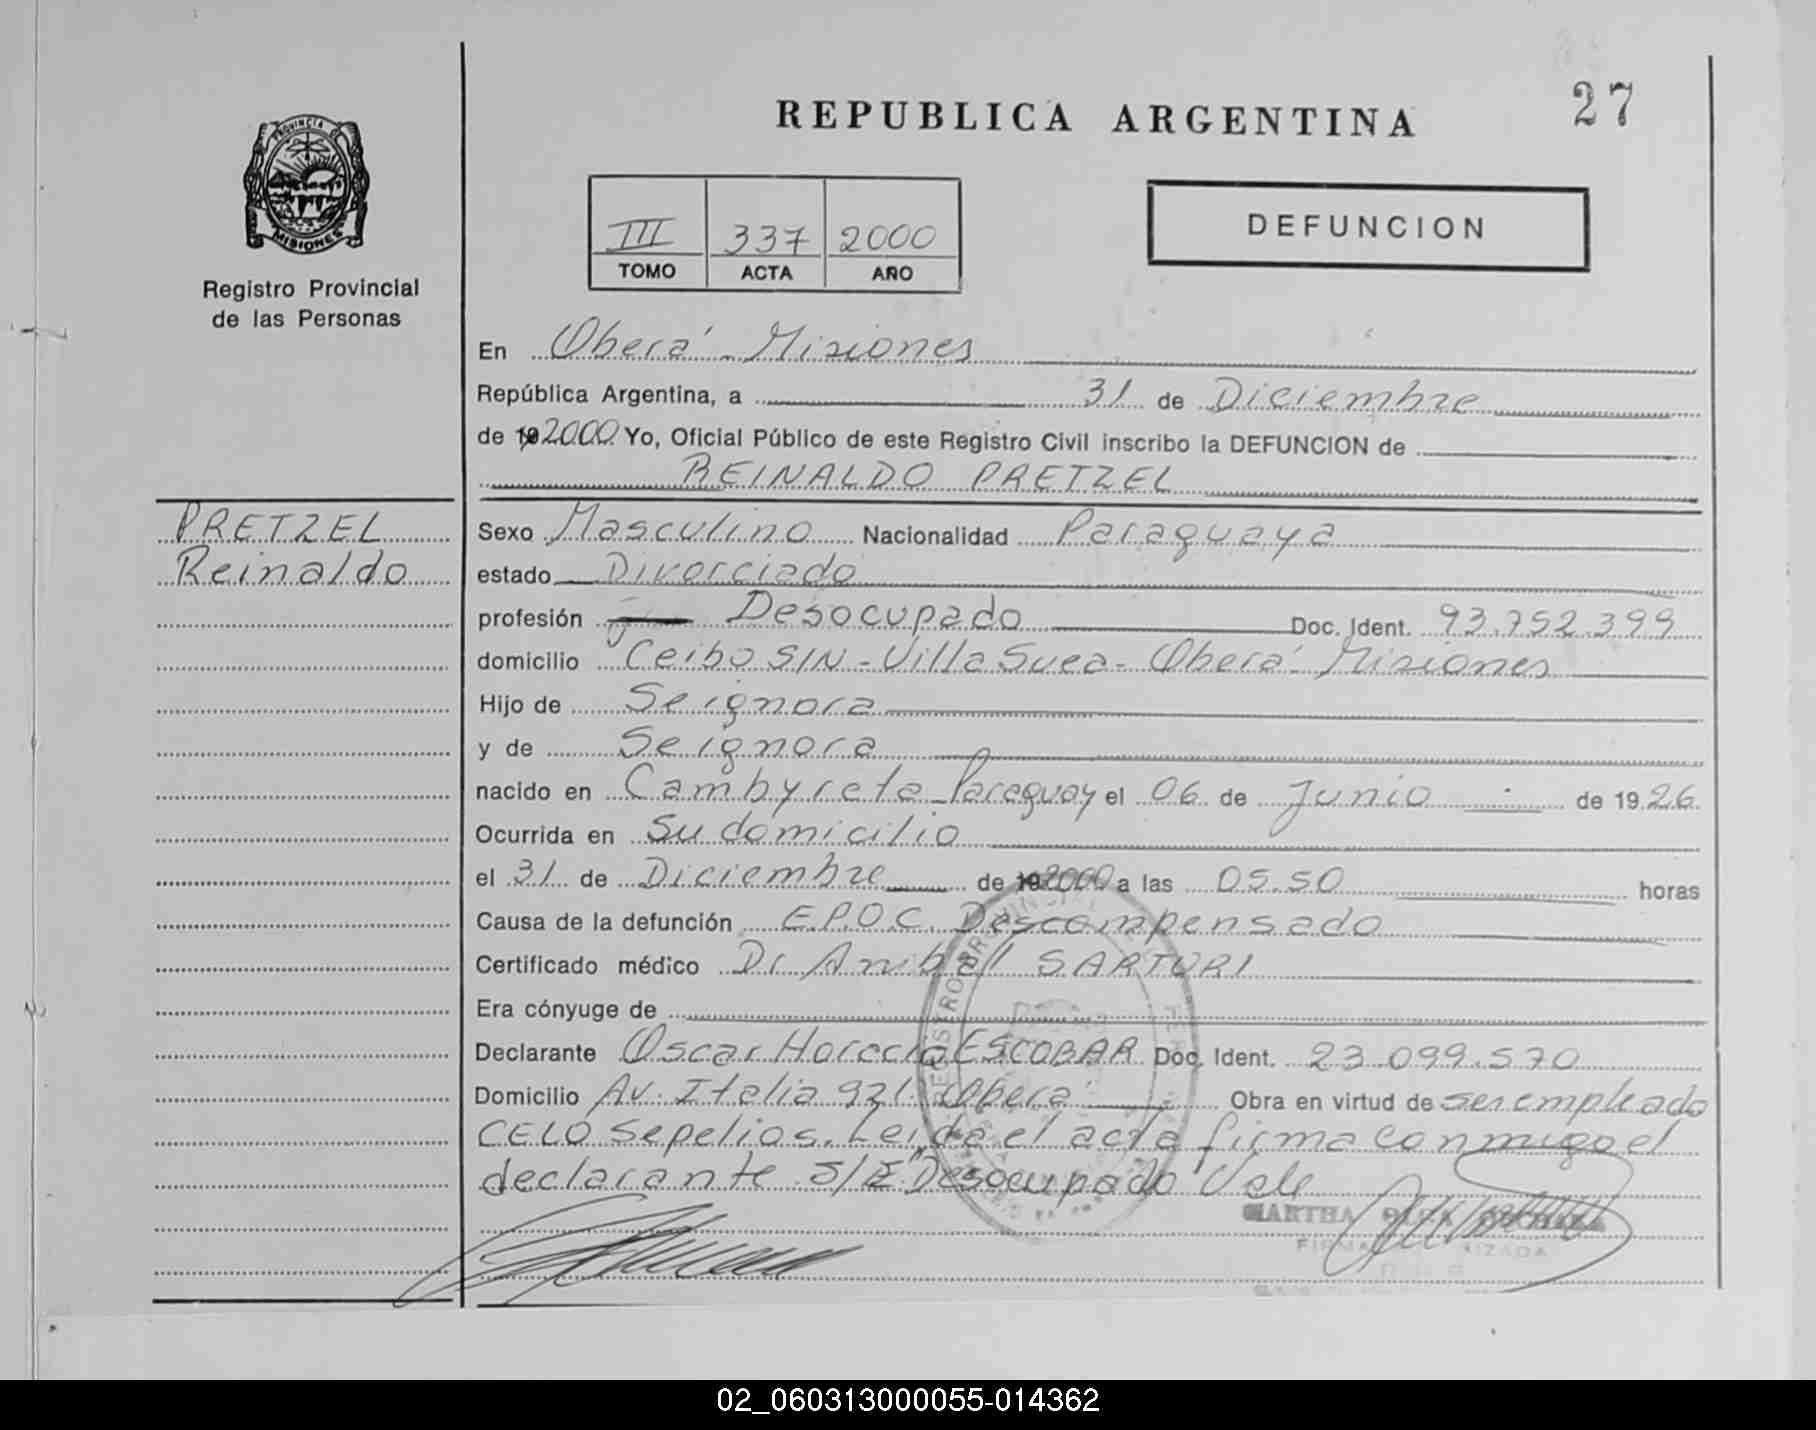 REPUBLICA ARGENTINA
27
PROVINCIA DE
MISIONES
Registro Provincial
de las Personas
III 337 2000
TOMO ACTA AÑO
DEFUNCION
En Oberá - Misiones
República Argentina, a 31 de Diciembre
de 19 2000 Yo, Oficial Público de este Registro Civil inscribo la DEFUNCION de
REINALDO PRETZEL
PRETZEL
Reinaldo
Sexo Masculino Nacionalidad Paraguaya
estado Divorciado
profesión Desocupado Doc. Ident. 93.752.399
domicilio Ceibo S/N - Villa Suea - Oberá - Misiones
Hijo de Se ignora
y de Se ignora
nacido en Cambyreta - Paraguay el 06 de Junio de 1926
Ocurrida en Su domicilio
el 31 de Diciembre de 19 2000 a las 05.50 horas
Causa de la defunción E.P.O.C. Descompensado
Certificado médico Dr Anibal SARTURI
Era cónyuge de
Declarante Oscar Horacio ESCOBAR Doc. Ident. 23.099.570
Domicilio Av. Italia 921 Oberá Obra en virtud de ser empleado
CELO Sepelios. Leída el acta firma conmigo el
declarante S/E "Desocupado Vale
MARTHA OLGA
02_060313000055-014362